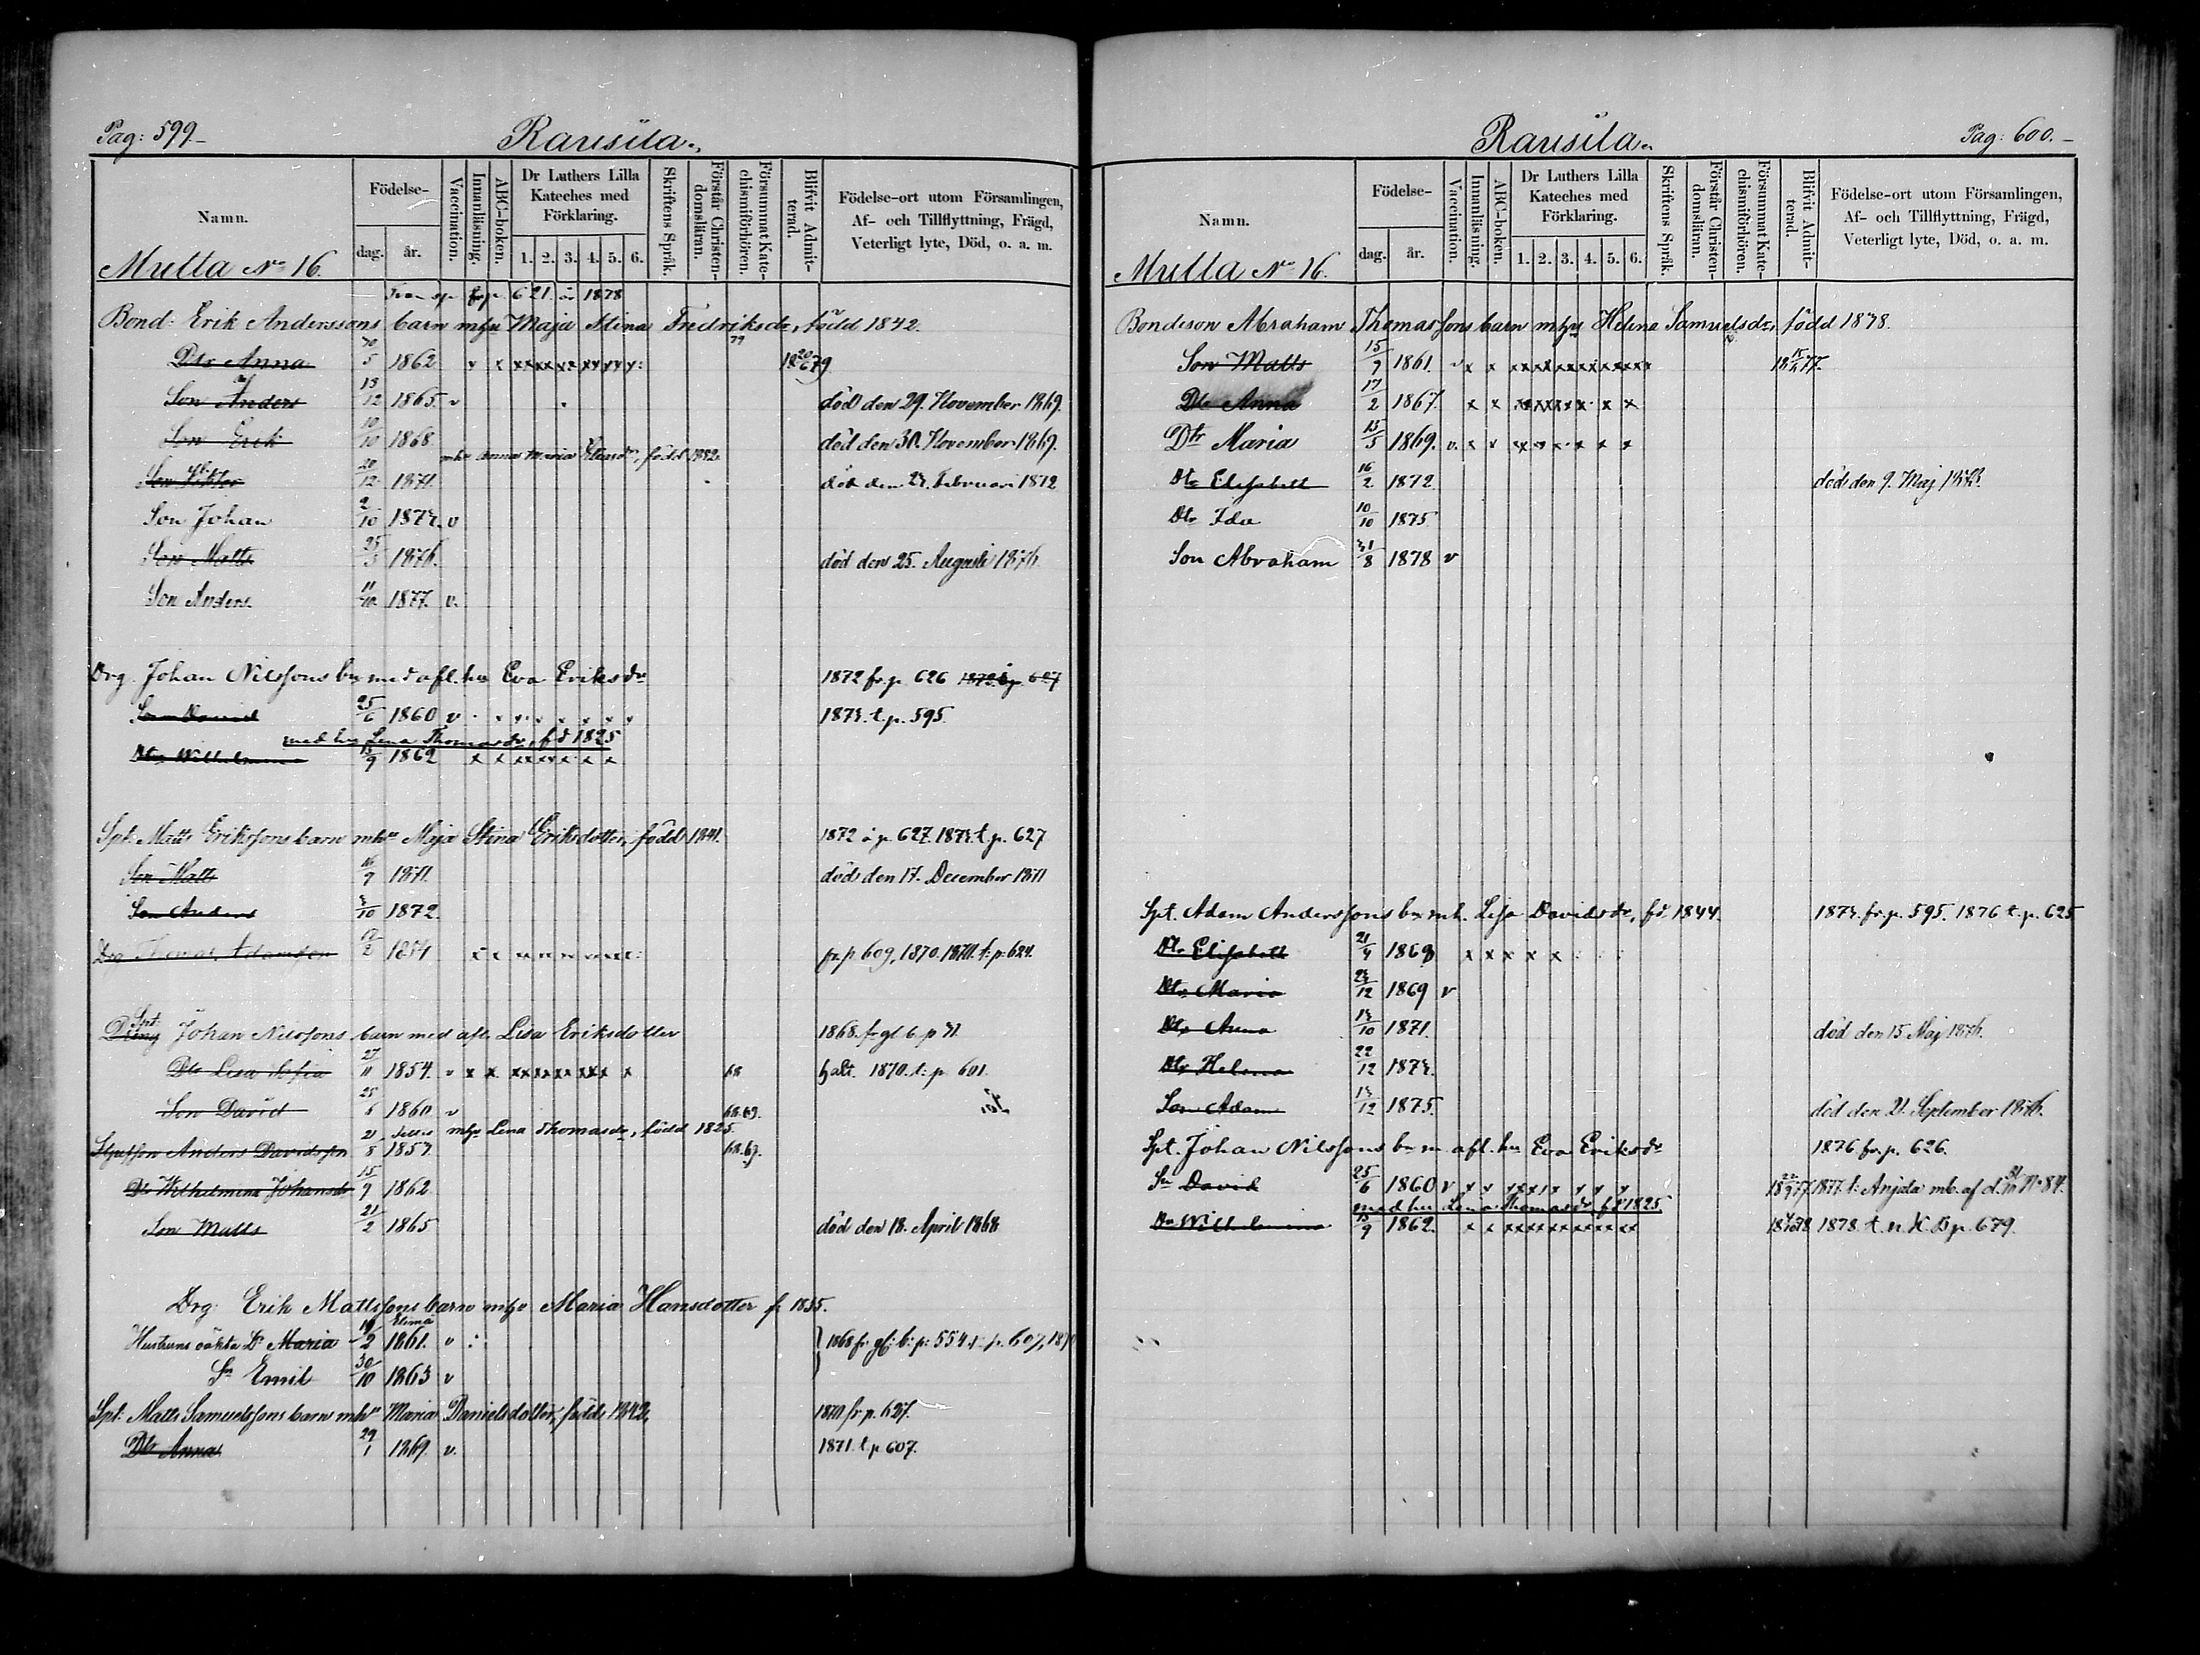 Pag: 599.
Rausila.
Namn.
Födelse-
dag.
år.
Vaccination.
Innanläsning.
ABC-boken.
Dr Luthers Lilla
Kateches med
Förklaring.
1. 2. 3. 4. 5. 6.
Skriftens Språk.
Förstår Christen-
domsläran.
Försummat Kate-
chismiförhören.
Blifvit Admit-
terad.
Födelse-ort utom Församlingen,
Af- och Tillflyttning, Frägd,
Veterligt lyte, Död, o. a. m.
Mulla No 16.
fr. p. 621. 1878
Bond: Erik Anderssons barn mhu Maja Stina Fredriksdr, född 1842.
Dtr Anna 5 1862 v x xx xx xx xx yy y: 79
Son Anders 13/12 1865. v död den 29. November 1869.
Son Erik 10/10 1868 död den 30. November 1869.
mhu Anna Maria född 1842.
Son Viktor 20/12 1871. död den Februari 1872
Son Johan 2/10 1873. v
Son Matts 25/3 1876. död den 25. Augusti 1876.
Son Anders 11/10 1877. v.
Drg. Johan Nilssons bn med afl. hu Eva Eriksdr 1872 fr. p. 626 1872 t. p. 627
Son David 25/6 1860 v 1873. t. p. 595.
med hu Lena Thomasdr, fd 1825
Dtr Wilhelmina 15/9 1862 x x xx xx x x x
Spt. Matts Erikssons barn mhu Maja Stina Eriksdotter, född 1841. 1872 å p. 627. 1873. t. p. 627
Son Matts 16/9 1871. död den 17. December 1871
Son Anders 3/10 1872.
Drg Thomas Adamsson 1854 fr. p. 609, 1870. 1871. t: p: 624.
Spt. Dräng Johan Nilssons barn med afl. Lisa Eriksdotter 1868. fr. gl. b. p 31
Dtr Lisa Sofia 27/11 1854. v x x xx xx xx xxx x 68 halt. 1870. t: p 601.
Son David 25/6 1860 v 68.69.
mhu Lena Thomasdr, född 1825.
Styfson Anders Davidsson 21/8 1857 68.69.
Dtr Wilhelmina Johansdr 15/9 1862
Son Matts 21/2 1865 död den 18. April 1868
Drg. Erik Mattssons barn mhu Maria Hansdotter f. 1835.
Elimä
Hustruns oäkta Dr Maria 19/2 1861. v 1868 fr. gl: b: p: 554. t. p. 607, 1870
Sn Emil 30/10 1863 v
Spt: Matts Samuelssons barn mhu Maria Danielsdotter, född 1842, 1870 fr p. 627.
Dtr Anna 29/1 1869. v. 1871. t. p 607.
Rausila.
Pag: 600.
Namn.
Födelse-
dag.
år.
Vaccination.
Innanläsning.
ABC-boken.
Dr Luthers Lilla
Kateches med
Förklaring.
1. 2. 3. 4. 5. 6.
Skriftens Språk.
Förstår Christen-
domsläran.
Försummat Kate-
chismiförhören.
Blifvit Admit-
terad.
Födelse-ort utom Församlingen,
Af- och Tillflyttning, Frägd,
Veterligt lyte, Död, o. a. m.
Mulla No 16.
Bondeson Abraham Thomassons barn mhu Helena Samuelsdr, född 1838.
Son Matts 15/9 1861. v x x xx xx xx xx xx xx
Dtr Anna 17/2 1867. x x xx xx xx x x
Dtr Maria 15/5 1869. v. x x xx x x x x x
Dtr Elisabeth 16/2 1872. död den 9. Maj
Dtr Ida 10/10 1875.
Son Abraham 31/8 1878 v
Spt. Adam Anderssons bn mh. Lisa Davidsdr, fd. 1844. 1873. fr. p. 595. 1876 t. p. 625
Dtr Elisabeth 21/4 1868 x x x x x
Dtr Maria 23/12 1869 v
Dtr Anna 13/10 1871. död den 15. Maj 1876.
Dtr Helena 22/12 1873.
Son Adam 13/12 1875. död den 21. September 1876.
Spt. Johan Nilssons bn m. afl. hu Eva Eriksdr 1876 fr. p. 626.
Sn David 25/6 1860 v 1877 t. Anjala mb. af d. No 84.
med hu Lena Thomasdr, fd 1825
Dtr Wilhelmina 15/9 1862. x x xx xx xx xx xx 1878 t. n. K. B p. 679.